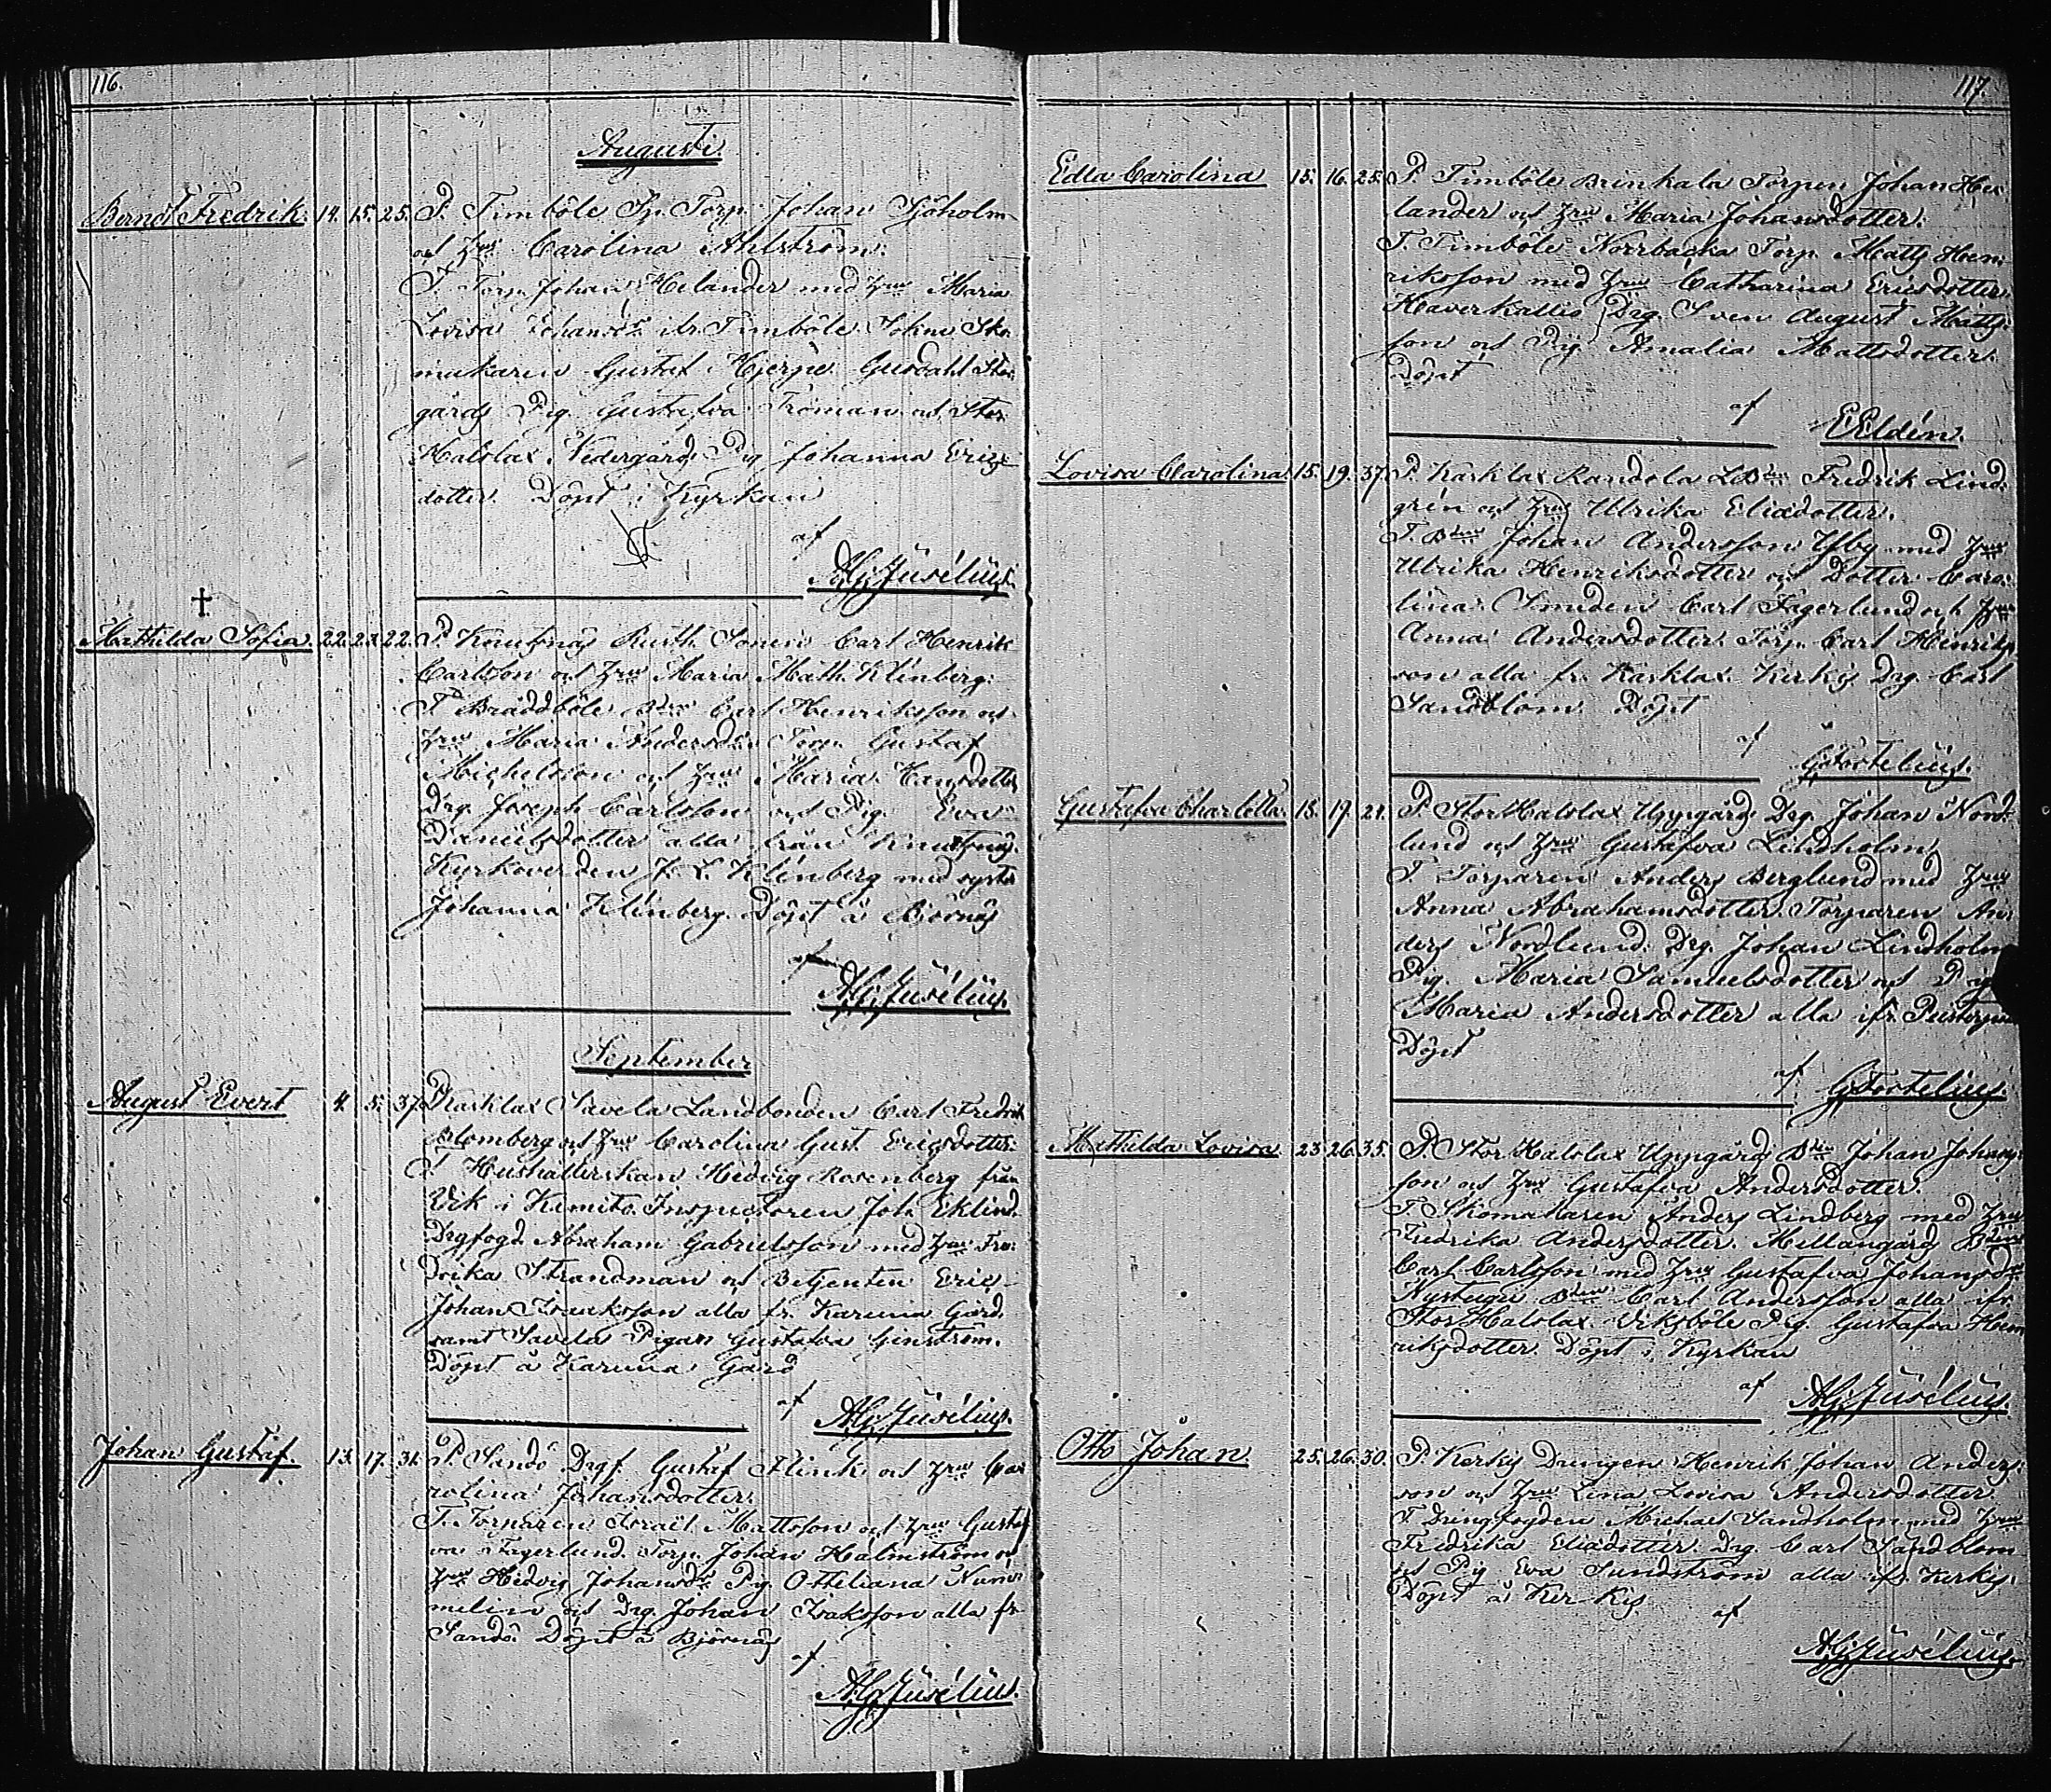 116.
Augusti
Berndt Fredrik. 14. 15. 25. P. Timböle Sp. Torp. Johan Sjöholm
och hu Carolina Ahlström.
T. Torp. Johan Helander med hu Maria
Lovisa Johansd. ifr. Timböle Johan Sko
makaren Gustaf Hjerpe Gesdahl Stor
gårds Pig. Gustafva Fröman och Stor
Halslax Nedergårds Pig Johanna Erics
dotter. Döpt i Kyrkan
af
A. G. Jusélius.
†
Mathilda Sofia. 22. 22. P. Rusth. Sonen Carl Henrik
Carlsson och hu Maria Math. Klinberg.
T. Bråddböle Carl Henriksson och
hu Maria Andersd. Torp. Gustaf
Michelsson och hu Maria Hansdotter
Drg. Joseph Carlsson och Pig. Eva
Danielsdotter alla från Knutsnäs.
Kyrkoverden J. L. Klinberg med syster
Johanna Klinberg. Döpt å Björnäs
af
A. G. Jusélius.
September
August Evert 4. 5. 37. P. Karklax Savela Landbonden Carl Fredrik
Blomberg och hu Carolina Gust. Ericsdotter.
T. Hushållerskan Hedvig Rosenberg från
Vik i Kimito. Inspectoren Joh. Eklund.
Drgfogd. Abraham Gabrielsson med hu Fre
drika Strandman och Betjenten Eric
Johan Isaaksson alla fr. Karuna Gård
samt Savela Pigan Gustafva Genström.
Döpt å Karuna Gård
af
A. G. Jusélius.
Johan Gustaf. 13. 17. 31. P. Sandö Drgf. Gustaf Flink och hu Ca
rolina Johansdotter.
T. Torparen Israel Mattsson och hu Gustaf
va Fagerlund. Torp. Johan Halmström och
hu Hedvig Johansd. Pig. Otteliana Num
melin och Drg. Johan Isaksson alla fr.
Sandö. Döpt å Björnäs
af
A. G. Jusélius.
117.
Edla Carolina 15. 16. 25. P. Timböle Brinkala Torpen Johan He
lander och hu Maria Johansdotter.
T. Timböle Norrbacka Torp. Matts Hen
riksson med hu Catharina Ericsdotter.
Haverkallio Drg. Sven August Matts
son och Pig. Amalia Mattsdotter.
Döpt
af
E. Eldén.
Lovisa Carolina. 15. 19. 37. P. Karklax Randola LBdn Fredrik Lind
grén och hu Ulrika Eliædotter.
T. Bdn Johan Andersson Yfby med hu
Ulrika Henriksdotter och Dotter Caro
lina. Smeden Carl Fagerlund och hu
Anna Andersdotter. Torp. Carl Henriks
son alla fr. Karklax. Kerkis Drg. Carl
Sandblom. Döpt
af
G. Fortelius.
Gustafva Charlotta. 13. 17. 21. P. Stor Halslax Uppgårds Drg. Johan Nord
lund och hu Gustafva Lindholm
T. Torparen Anders Berglund med hu
Anna Abrahamsdotter. Torparen An
ders Nordlund. Drg. Johan Lindholm
Pig. Maria Samuelsdotter och Pig
Maria Andersdotter alla ifr.
Döpt
af
G. Fortelius.
Mathilda Lovisa. 23. 26. 35. P. Stor Halslax Uppgårds Bdn Johan Johans
son och hu Gustafva Andersdotter.
T. Skomakaren Anders Lindberg med hu
Fredrika Andersdotter. Mellangårds Bdn
Carl Carlsson med hu Gustafva Johansd.
Nystugu Bdn Carl Andersson alla ifr.
Stor Halslax. Viksböle Pig. Gustafva Hen
riksdotter. Döpt i Kyrkan
af
A. G. Jusélius.
Otto Johan. 25. 26. 30. P. Kerkis Drengen Henrik Johan Anders
son och hu Lena Lovisa Andersdotter.
T. Drengfogden Michael Sandholm med hu
Fredrika Eliædotter. Drg. Carl Sandblom
och Pig Eva Sundström alla ifr. Kerkis.
Döpt å Kerkis
af
A. G. Jusélius.